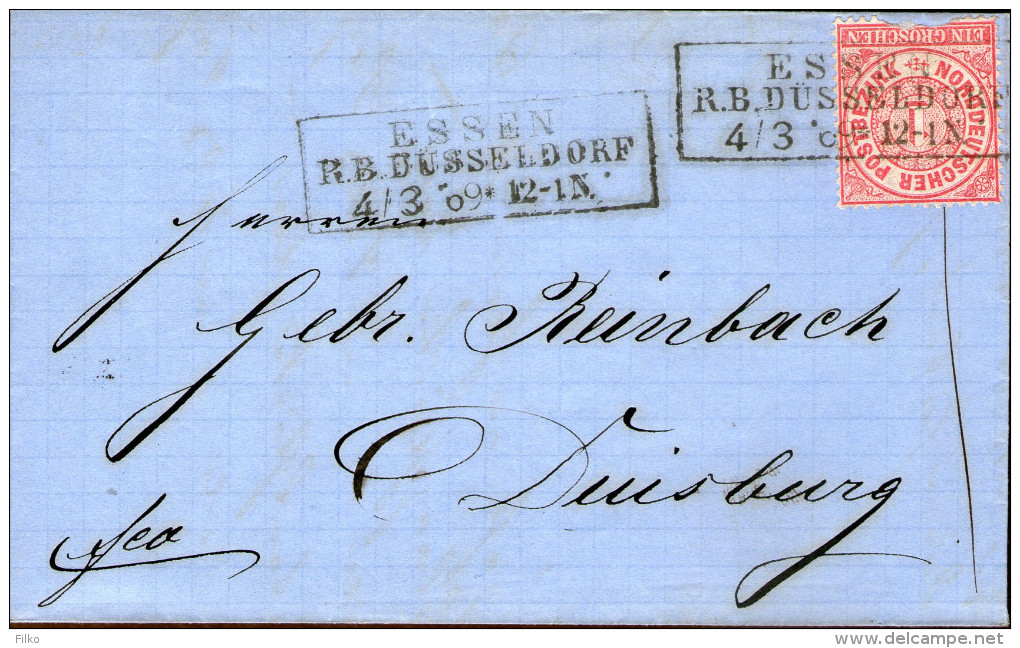 ESSEN
R.B.DÜSSELDORF
4/3 69* 12-1N.
ESSEN
R.B.DÜSSELDORF
4/3 69* 12-1N.
EIN GROSCHEN
NORDDEUTSCHER POSTBEZIRK
1
Herren
Gebr. Reinbach
Duisburg
fco
Filko
delcampe.net